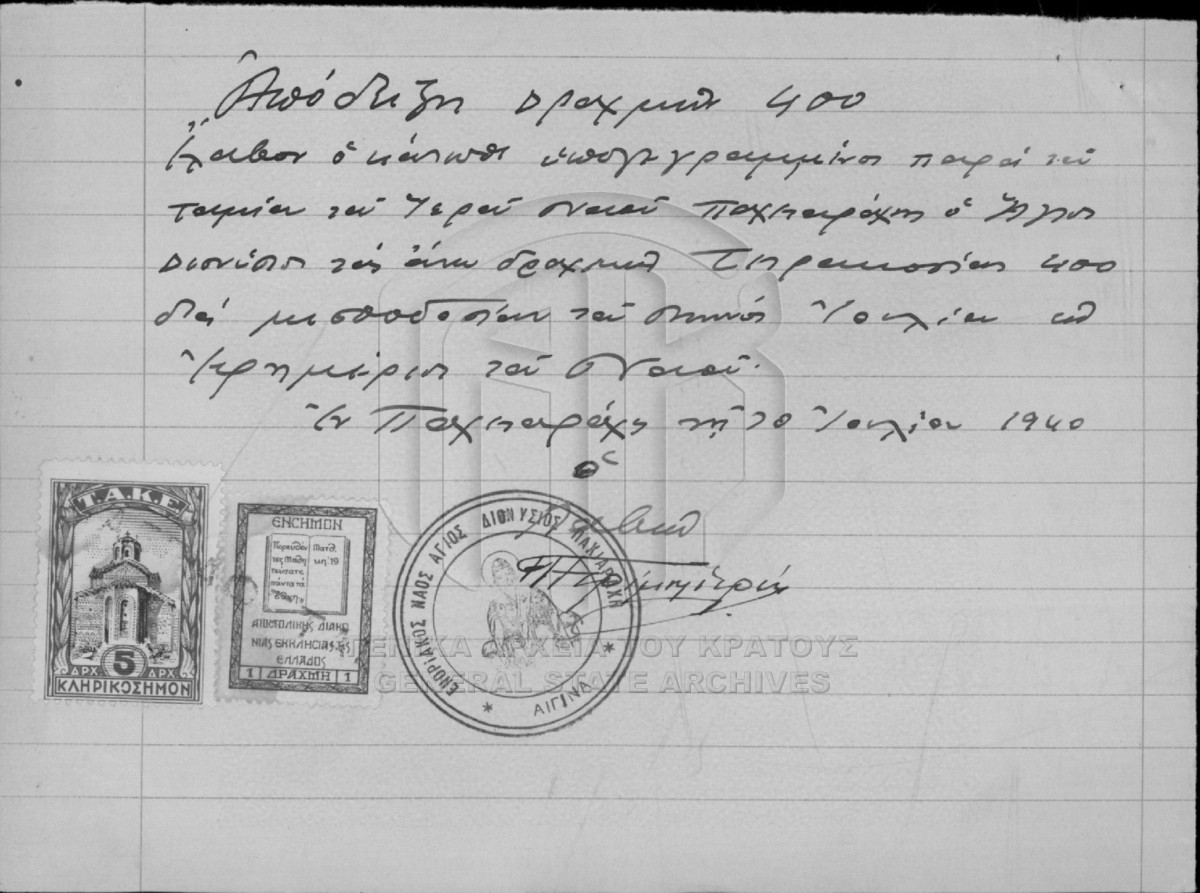 Ἀπόδειξη Δραχμὰς 400
Ἔλαβον ὁ κάτωθι ὑπογεγραμμένος παρά τοῦ
ταμίου τοῦ Ἱεροῦ Ναοῦ Παχειαράχης ὁ Ἅγιος
Διονύσιος τάς ἄνω δραχμάς Τετρακοσίας 400
διά μισθοδοσίαν τοῦ μηνός Ἰουλίου ὡς
Ἐφημέριος τοῦ Ναοῦ.
Ἐν Παχειαράχῃ τῇ 30 Ἰουλίου 1940
ὁ
Λαβών
Τ.Α.Κ.Ε
5
ΔΡΧ ΔΡΧ
ΚΛΗΡΙΚΟΣΗΜΟΝ
ΕΝΣΗΜΟΝ
Πορευθέν Ματθ.
τες Μαθη κη΄.19
τεύσατε
πάντα τά
ἔθνη
ΑΠΟΣΤΟΛΙΚΗΣ ΔΙΑΚΟ
ΝΙΑΣ ΕΚΚΛΗΣΙΑΣ ΤΗΣ
ΕΛΛΑΔΟΣ
1 ΔΡΑΧΜΗ 1
ΕΝΟΡΙΑΚΟΣ ΝΑΟΣ ΑΓΙΟΣ ΔΙΟΝΥΣΙΟΣ ΠΑΧΙΑΡΑΧΗ
* ΑΙΓΙΝΑ *
ΓΕΝΙΚΑ ΑΡΧΕΙΑ ΤΟΥ ΚΡΑΤΟΥΣ
GENERAL STATE ARCHIVES